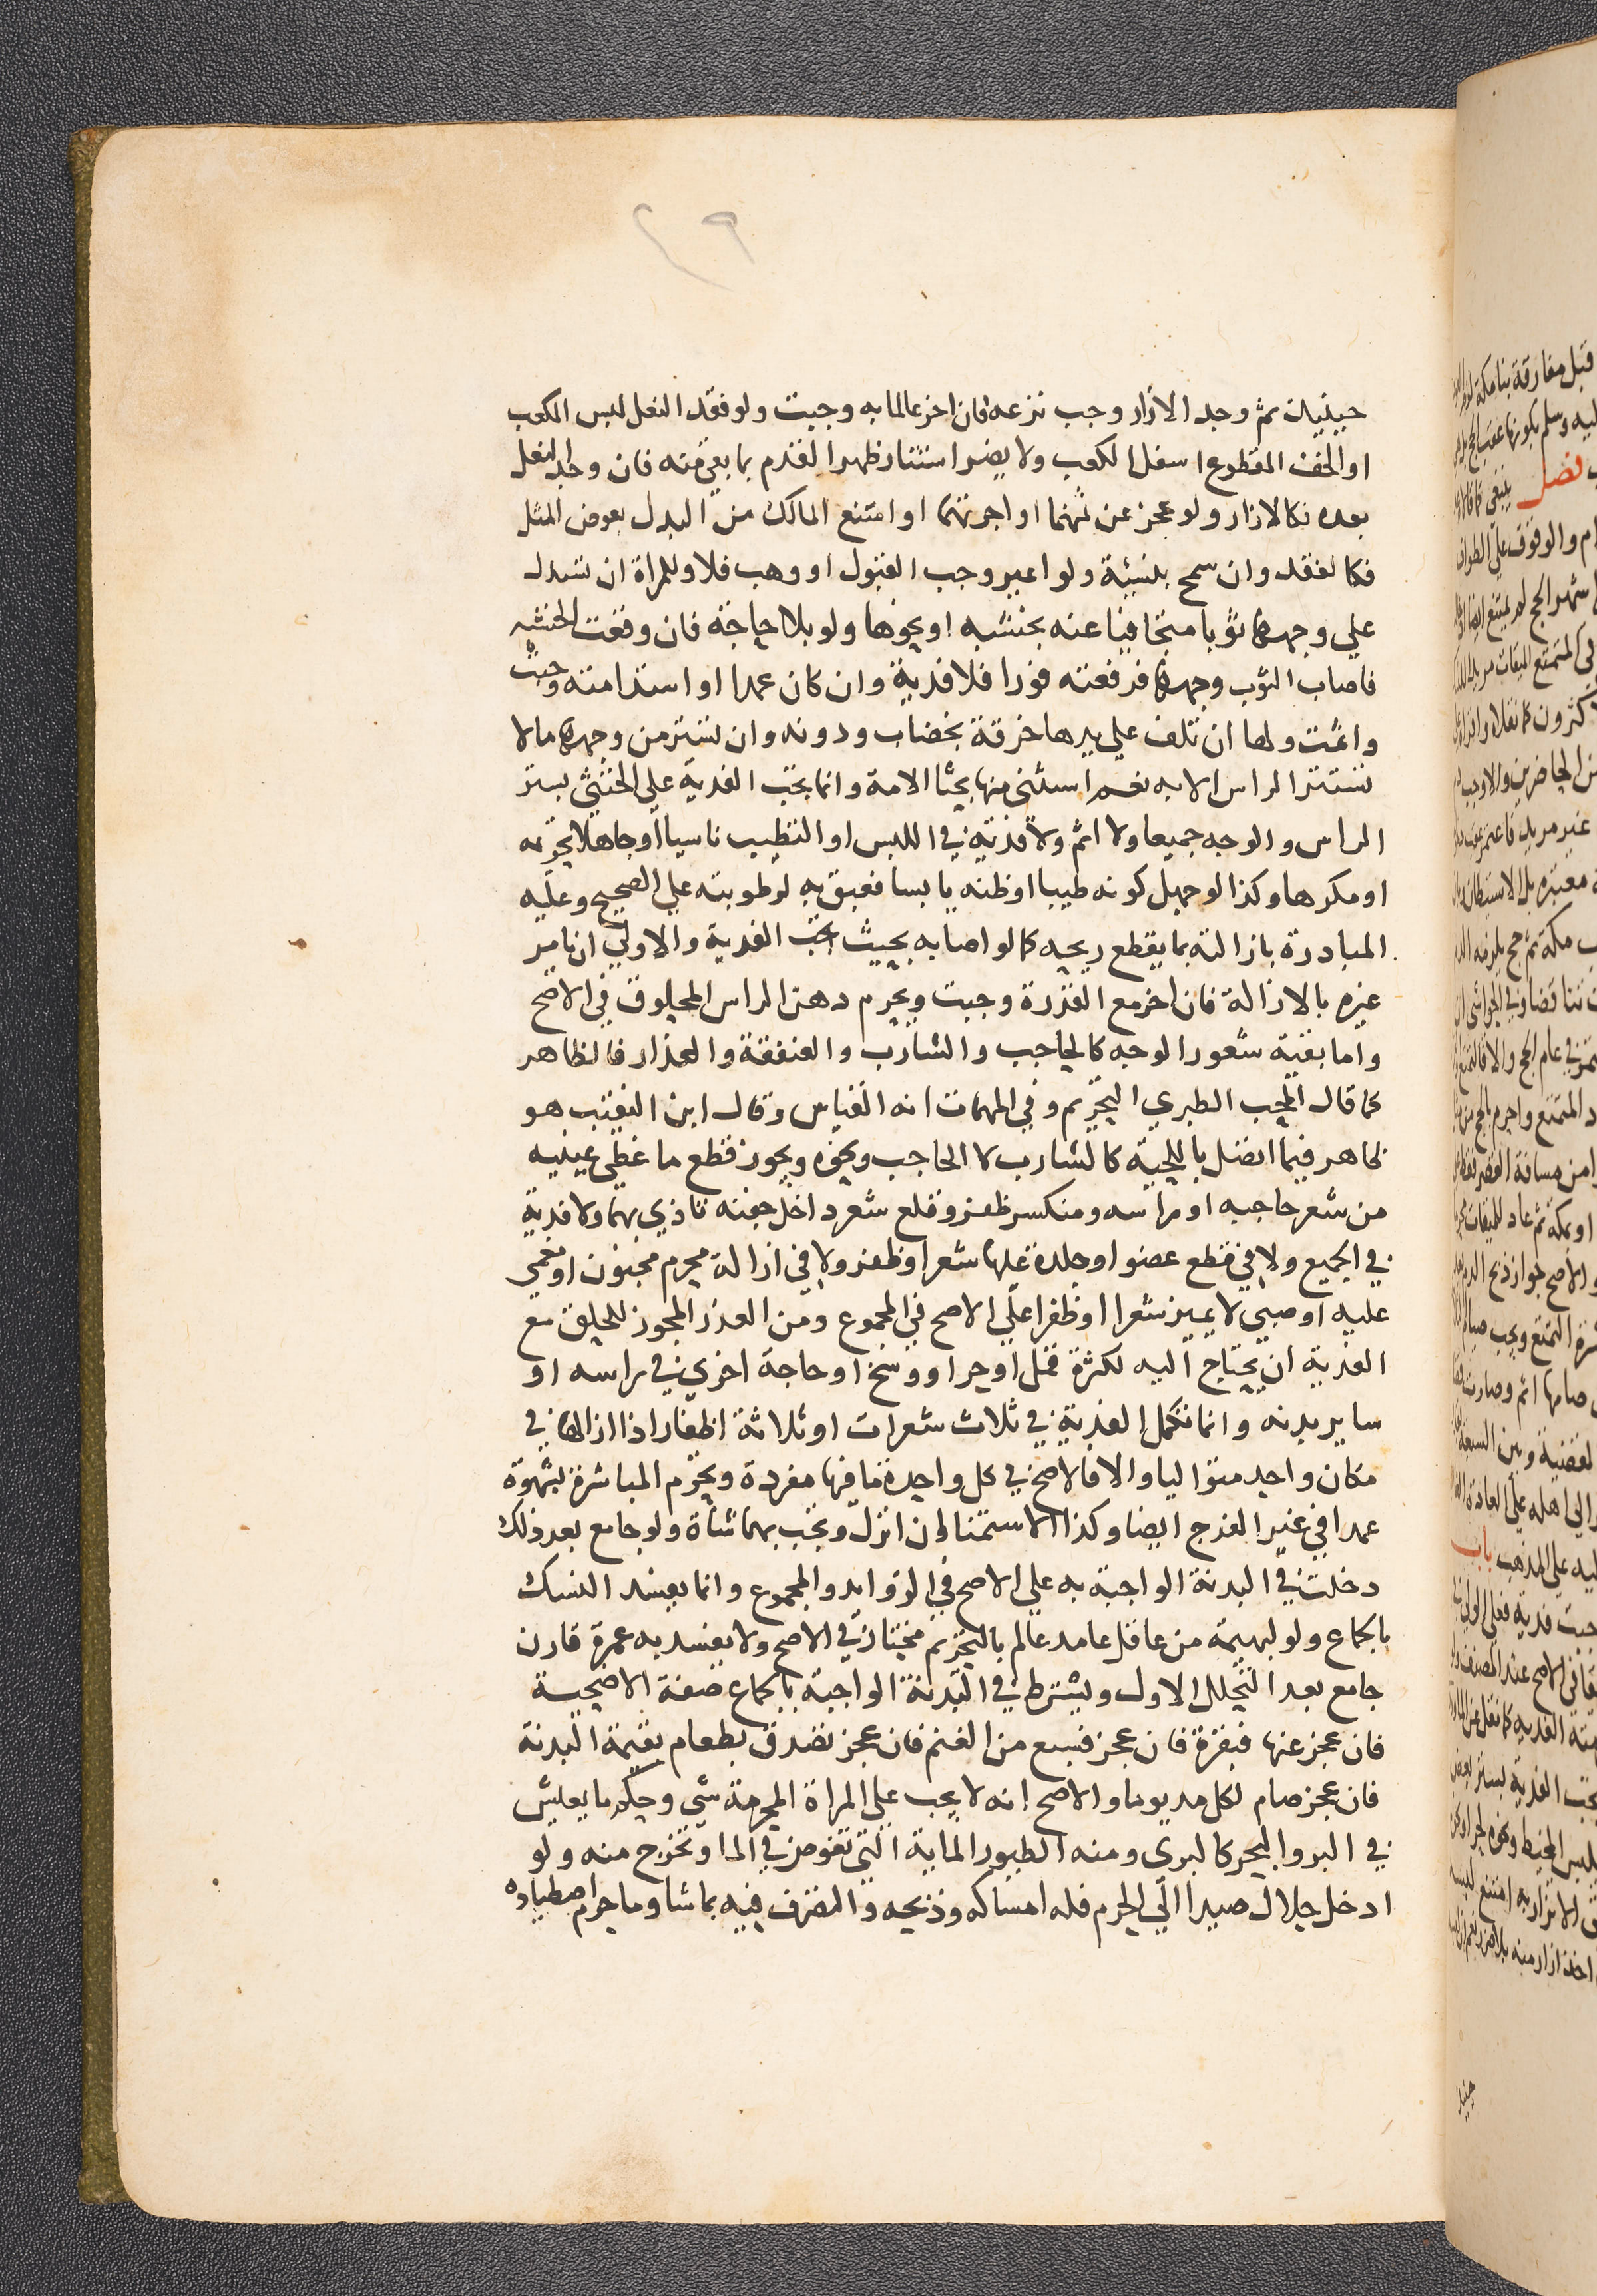 ٤٩
حينيذ ثم وجد الازار وجب نزعه فان اخر عالما به وجبت ولو فقد النعل لبس المكعب
او الخف المقطوع اسفل الكعب ولا يضر استتار ظهر القدم بما بقي منه فان وجد النعل
بعده فكالازار ولو عجز عن ثمنها او اجرتها او امتنع المالك من البدل بعوض المثل
فكالفقد وان سمح بنسيئة ولو اعير وجب القبول او وهب فلا وللمراة ان تسدل
علي وجهها ثوبا متجافيا عنه بخشبه او نحوها ولو بلا حاجة فان وقعت الخشبه
فاصاب الثوب وجهها فرفعته فورا فلا فدية وان كان عمدا او استدامته وجبت
واثمت ولها ان تلف علي يدها خرقة بخضاب ودونه وان تستر من وجهها ما لا
تستتر الراس الا به نعم استثني منها بحثا الامة وانما تجب الفدية علي الخنثي بستر
الراس والوجه جميعا ولا اثم ولا فدية في اللبس او التطيب ناسيا او جاهلا تحريمه
او مكرها وكذا لو جهل كونه طيبا او ظنه يابسا فعبق به لرطوبته علي الصحيح وعليه
المبادرة بازالته بما يقطع ريحه كما لو اصابه بحيث تجب الفدية والاولي ان يامر
غيره بالازالة فان اخر مع القدرة وجبت ويحرم دهن الراس المحلوق في الاصح
واما بقية شعور الوجه كالحاجب والشارب والعنفقة والعذار فالظاهر
كما قال المحب الطبري التحريم وفي المهمات انه القياس وقال ابن النقيب هو
ظاهر فيما اتصل باللحية كالشارب لا الحاجب ونحوه ويجوز قطع ما غطي عينيه
من شعر حاجبه او راسه ومنكسر ظفر وقلع شعر داخل جفنه تاذي بها ولا فدية
في الجميع ولا في قطع عضو او جلدة عليها شعر او ظفر ولا في ازالة محرم مجنون او مغمي
عليه او صبي لا يميز شعرا او ظفرا علي الاصح في المجموع ومن العذر المجوز للحلق مع
الفدية ان يحتاج اليه لكثرة قمل او حر او وسخ او حاجة اخري في راسه او
ساير بدنه وانما تكمل الفدية في ثلاث شعرات او ثلاثة اظفار اذا ازالها في
مكان واحد متواليا والا فالاصح في كل واحدة ما فيها مفردة ويحرم المباشرة بشهوة
عمدا في غير الفرج ايضا وكذا الاستمنا وان انزل وتجب بهما شاة ولو جامع بعد ذلك
دخلت في البدنة الواجبة به علي الاصح في الزوايد والمجموع وانما يفسد النسك
بالجماع ولو لبهيمة من عاقل عامد عالم بالتحريم مختار في الاصح ولا يفسد به عمرة قارن
جامع بعد التحلل الاول ويشترط في البدنة الواجبة بالجماع صفة الاضحية
فان عجز عنها فبقرة فان عجز فسبع من الغنم فان عجز تصدق بطعام بقيمة البدنة
فان عجز صام لكل مد يوما والاصح انه لا يجب علي المراة المحرمة شي وحكم ما يعيش
في البر والبحر كالبري ومنه الطيور المائية التي تغوص في الما وتخرج منه ولو
ادخل حلال صيدا الي الحرم فله امساكه وذبحه والتصرف فيه بما شا وما حرم اصطياده